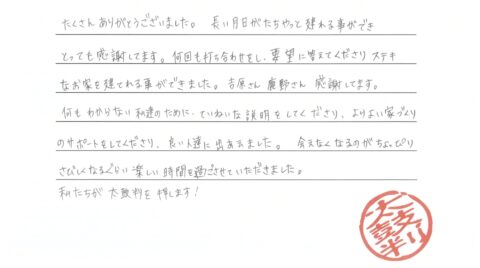 たくさんありがとうございました。長い月日がたちやっと建れる事ができ
とっても感謝してます。何回も打ち合わせをし、要望に答えてくださりステキ
なお家を建てれる事ができました。吉原さん 鹿野さん 感謝してます。
何もわからない私達のために、ていねいな説明をしてくださり、よりよい家づくり
のサポートをしてくださり、良い人達に出あえました。会えなくなるのがちょっぴり
さびしくなるぐらい楽しい時間を過ごさせていただきました。
私たちが太鼓判を押します!
太鼓判